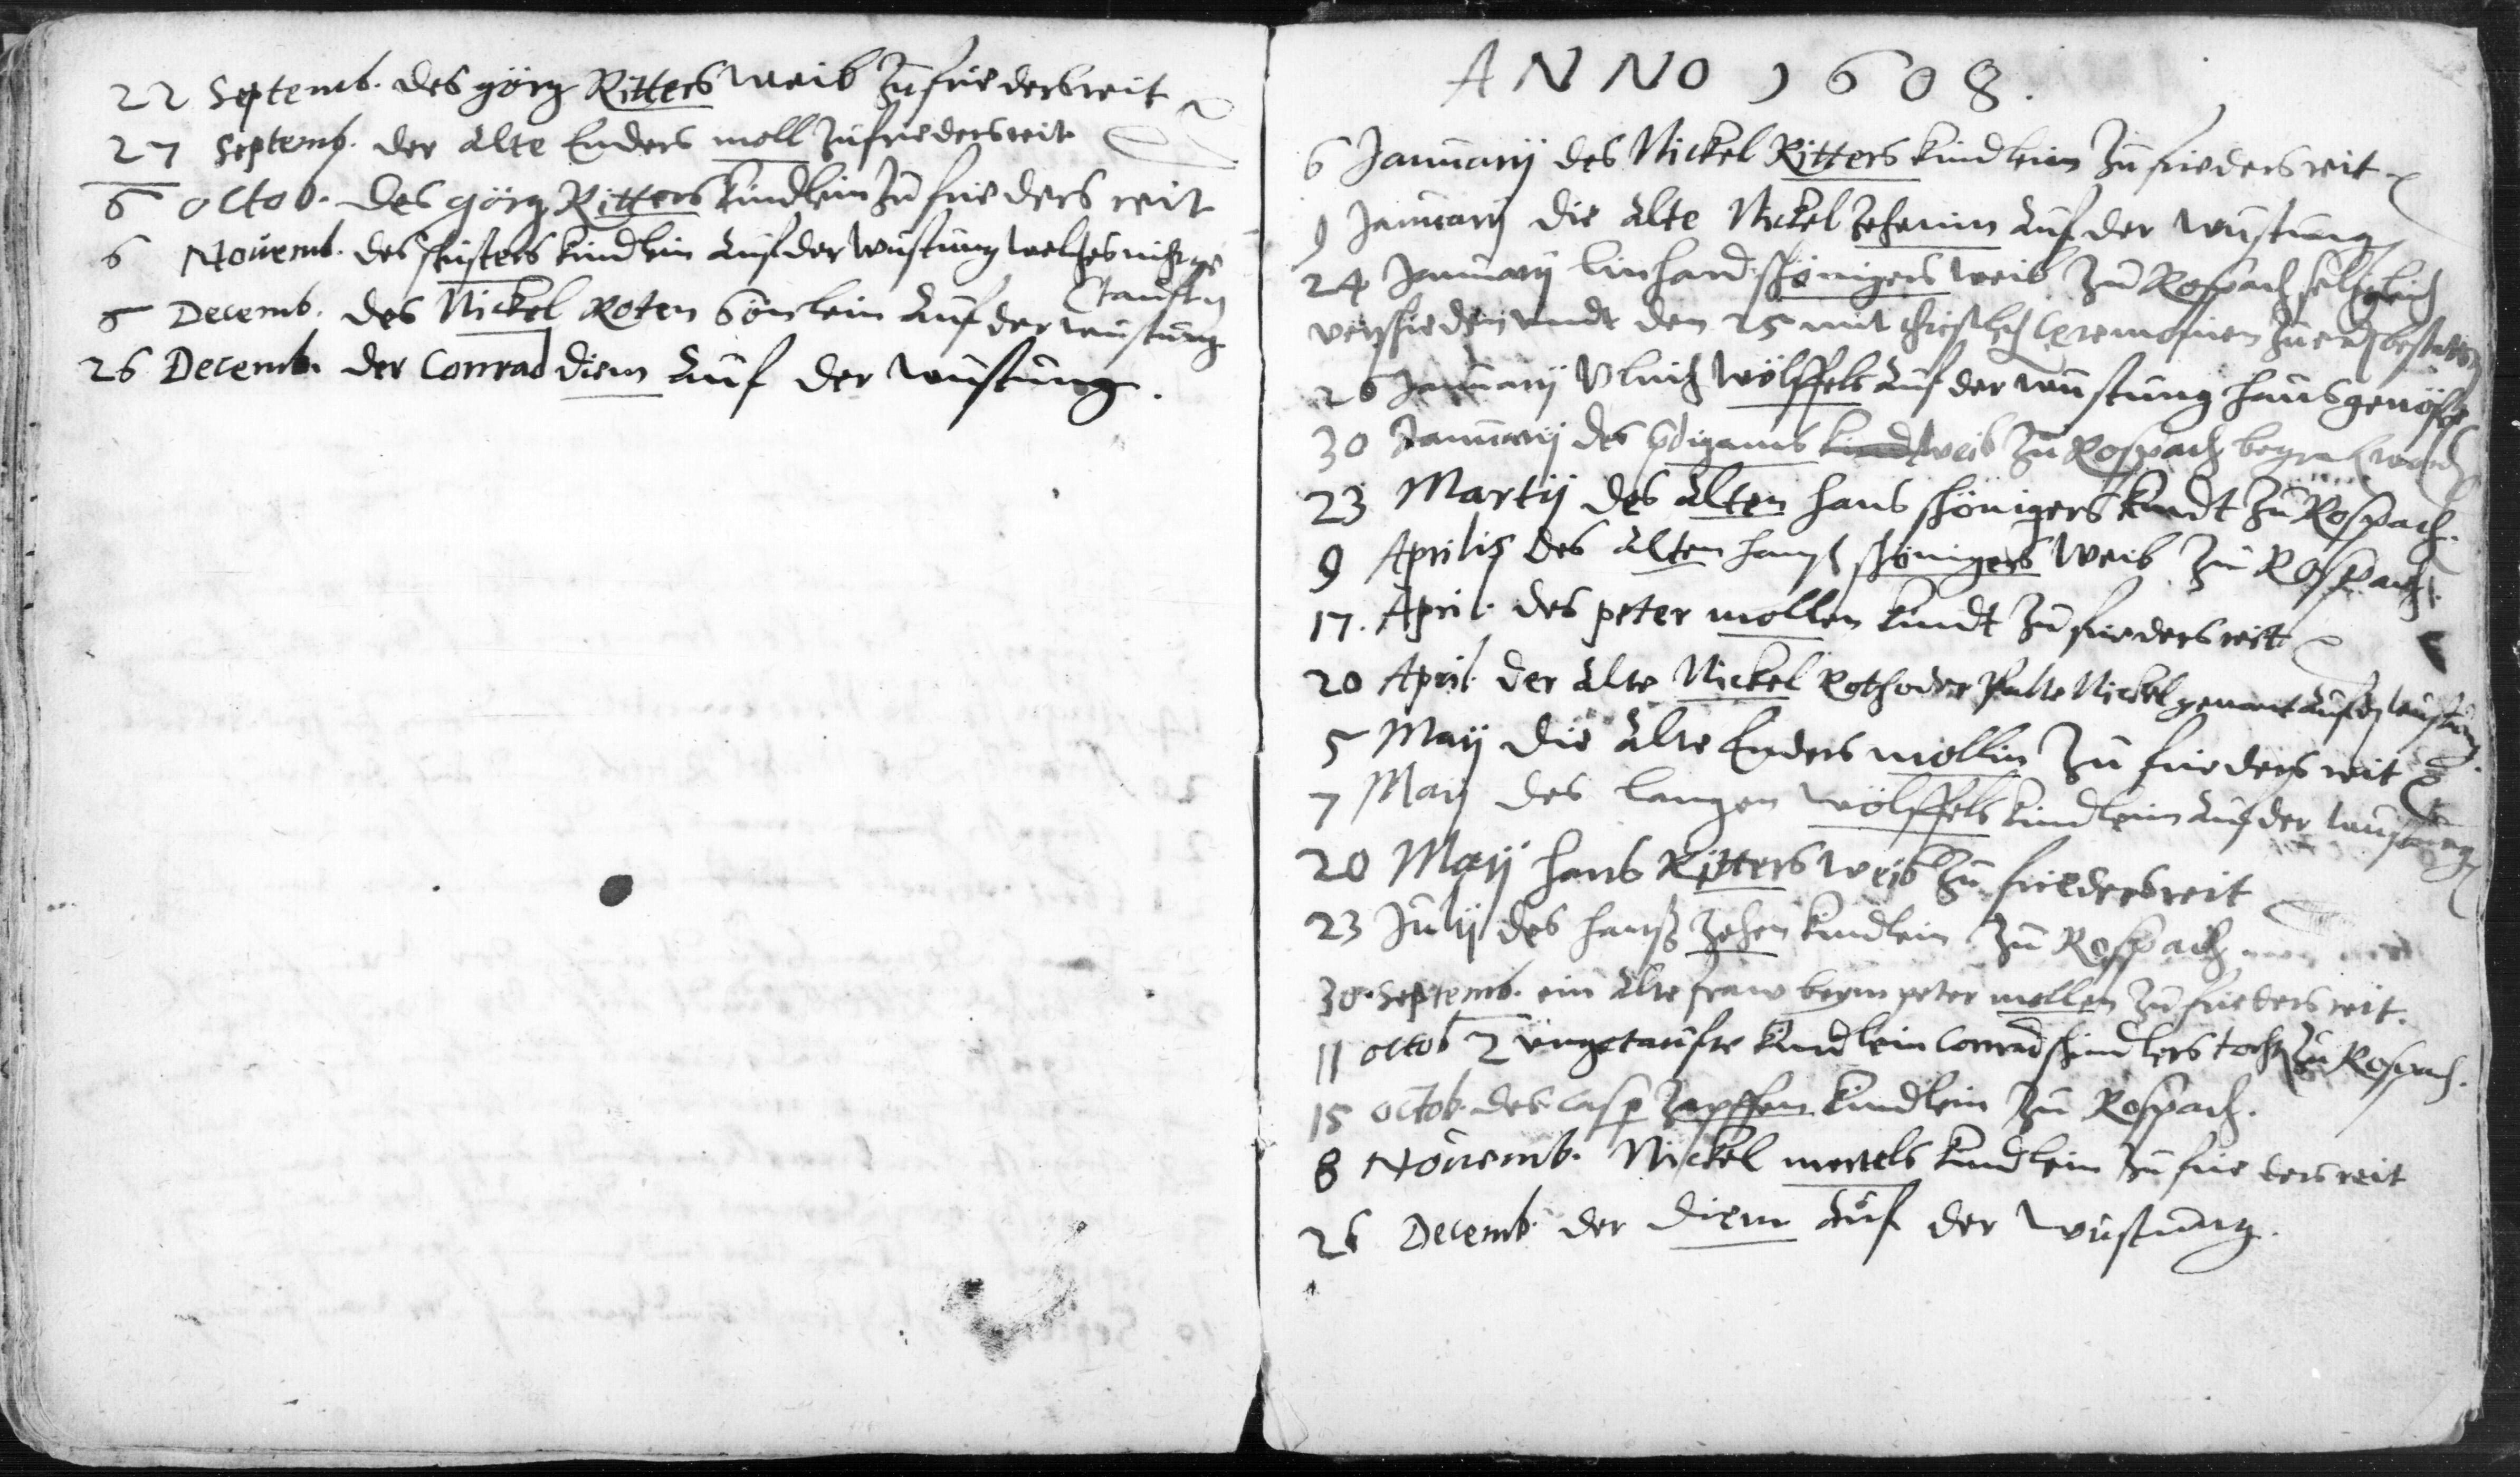 22 Septemb. des görg Ritters weib Zu friedersreit
27 Septemb. der alte Enders moll zu friedersreit
6 octob. des görg Ritters kindlein Zu friedersreit
6 Nouemb. des kindlein auf der wustung welches nicht ge
taufft
8 Decemb. des Nickel Roten Sönlein auf der wustung
26 Decemb. der Conrad diem auf der wustung.
ANNO 1608.
6 Januarij des Nickel Ritters kindlein Zu friedersreit
9 Januarij die alte Nickel Zehenin auf der wustung
24 Januarij linhard schönigers weib Zu Rospach seliglich
verschieden vnndt den 25 mit christlich Ceremonien zu erd bestatt
26 Januarij Vlrich wölffels auf der wustung hausgenoß
30 Januarij des weib Zu Rospach begrab word
23 Martij des alten hans schönigers kindt Zu Rospach.
9 Aprilis des alten hanß schönigers weib Zu Rospach.
17. April. des peter mollen kindt Zu friedersreit
20 April. der alte Nickel Roth oder Nickel genant auf d wustung.
5 Maij die alte Enders mollin Zu friedersreit
7 Maij des langen wölffels kindlein auf der wustung
20 Maij hans Ritters weib Zu friedersreit
23 Julij des hanß Zehen kindlein Zu Rospach
30. Septemb. ein alte fraw beym peter mollen Zu friedersreit.
11 octob 2 ungetaufte kindlein Conrad schindlers tochter Zu Rospach.
15 octob. des Casp Zapffen kindlein Zu Rospach.
8 Nouemb. Nickel mertels kindlein Zu friedersreit
26 Decemb. der diem auf der wustung.